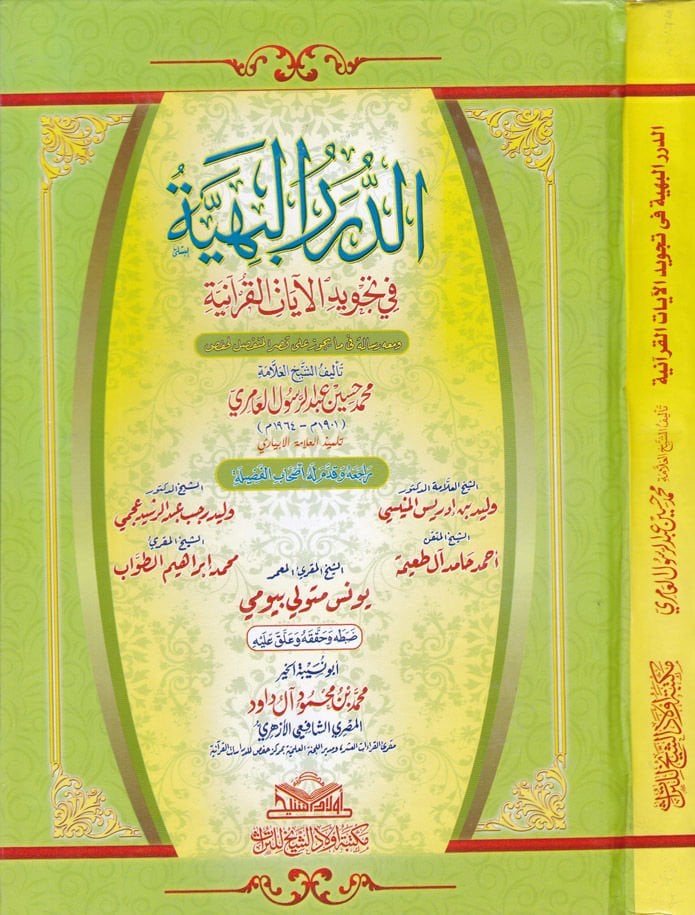 الدُّرَرُ البَهِيَّةُ
في تجويد الآيات القرآنية
ومعه رسالة في ما يجوز على قصر المنفصل لحفص
تأليفُ الشيخ العلَّامة
محمد حسين عبد الرسول العامري
(١٩٠١م - ١٩٦٤م)
تلميذ العلامة الابياري
راجعه وقدم له أصحاب الفضيلة
الشيخ العلامة الدكتور
وليد بن إدريس المنيسي
الشيخ الدكتور
وليد رجب عبد الرشيد عجمي
الشيخ المتقن
أحمد حامد آل طعيمة
الشيخ المقرئ
محمد إبراهيم الطواب
الشيخ المقرئ المعمر
يونس متولي بيومي
ضبطه وحققه وعلق عليه
أبو نسيبة الخير
محمد بن محمود آل داود
المصري الشافعي الأزهري
مقرئ القراءات العشر ومدير اللجنة العلمية بمركز حفص للدراسات القرآنية
أولاد الشيخ
مكتبة أولاد الشيخ للتراث
الدرر البهية فى تجويد الآيات القرآنية
تأليف الشيخ العلامة محمد حسين عبد الرسول العامري
مكتبة أولاد الشيخ للتراث